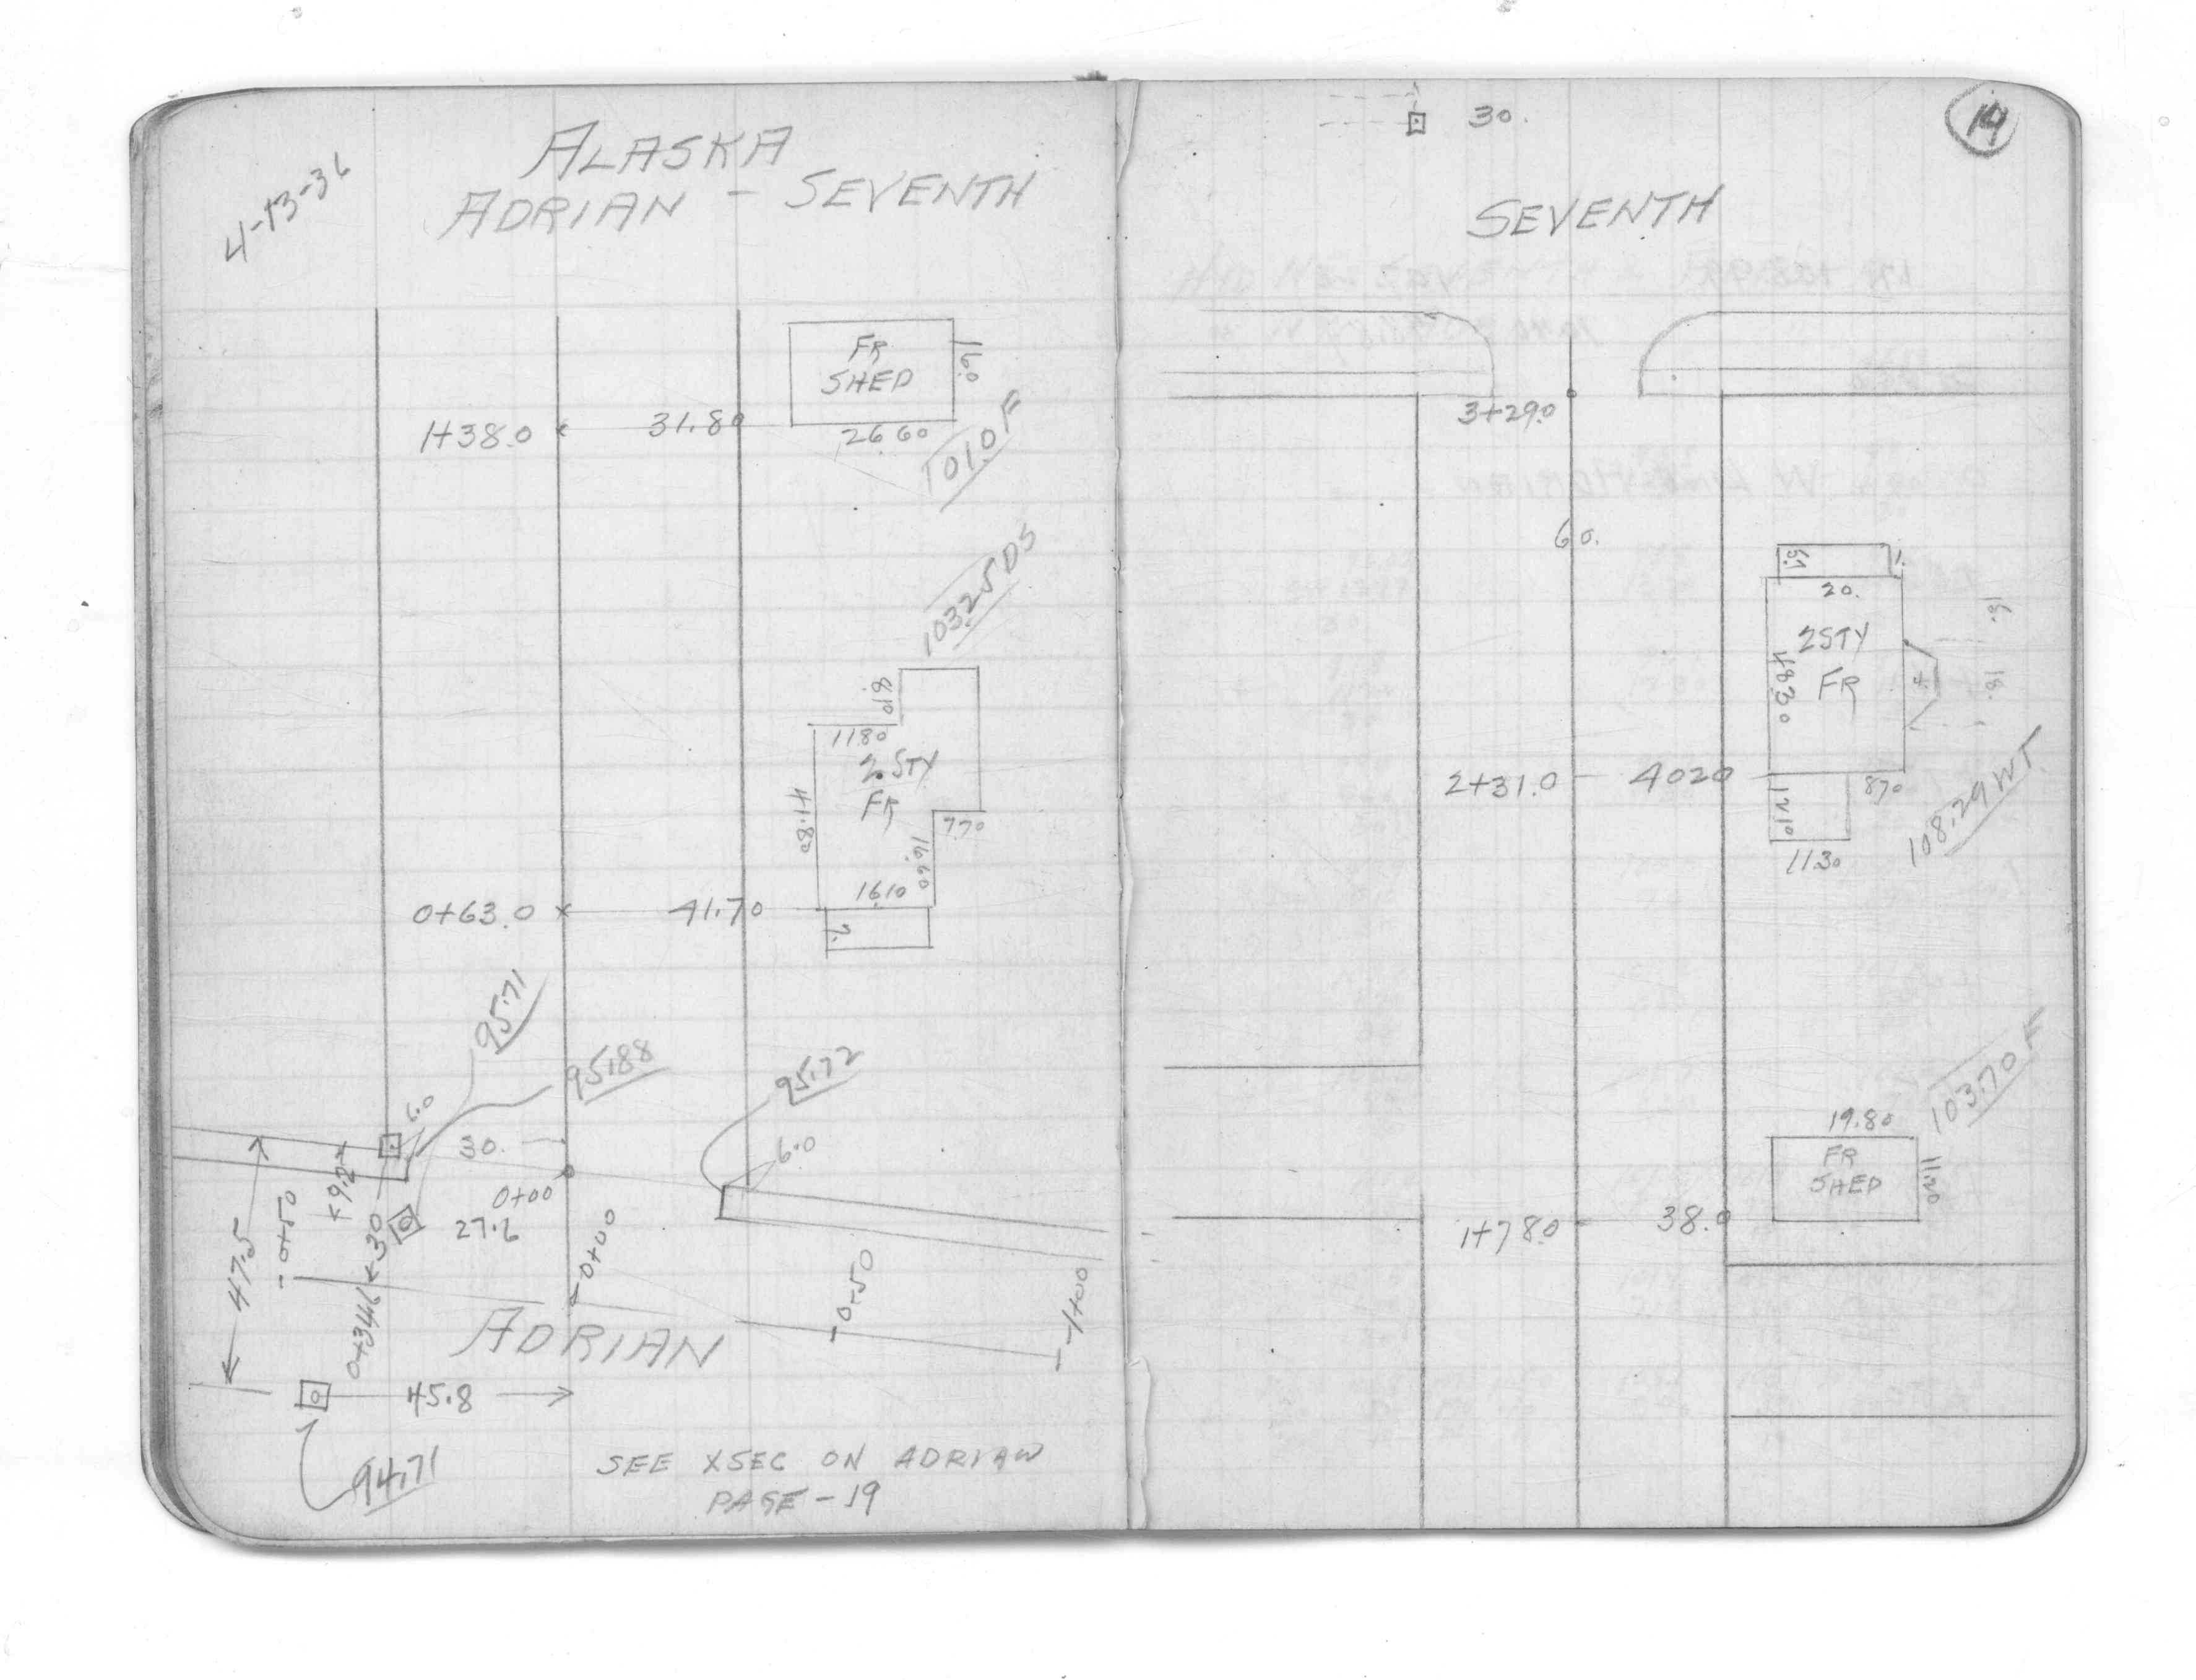 4-13-36
ALASKA
ADRIAN - SEVENTH
FR
SHED
16.0
1+38.0
31.80
26.60
101.0 F
103.25 DS
8.10
11.80
2.STY
FR
41.80
7.70
16.60
16.10
0+63.0
41.70
7.
95.71
95.88
95.72
6.0
30.
6.0
0+00
27.6
47.5
-0+50
0+34.6
30
0+00
-0+50
-1+00
ADRIAN
45.8
94.71
SEE XSEC ON ADRIAN
PAGE - 19
14
30.
SEVENTH
3+29.0
60.
20.
2STY
FR
48.30
4
16.
18.
2+31.0
40.20
8.70
12.10
11.30
108.29 WT.
103.70 F
19.80
FR
SHED
11.20
1+78.0
38.0